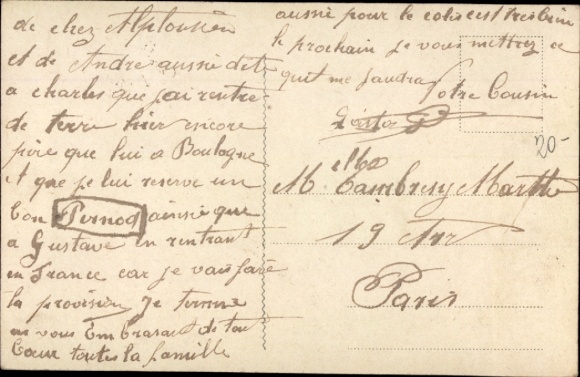 de chez Alphonsien
et de André aussi dite
a charles que j'ai rentre
de terre hier encore
pire que lui a Boulogne
et que je lui reserve un
bon Pernod ainsi que
a Gustave en rentrant
en France car je vais faire
la provision je termine
en vous Embrasant de tout
Cœur toutes la famille
aussie pour le colis c'est tres bien
le prochain je vous mettrez ce
quit me faudra
Votre Cousin
Gaston
20-
M elle Cambresy Marthe
19
Paris